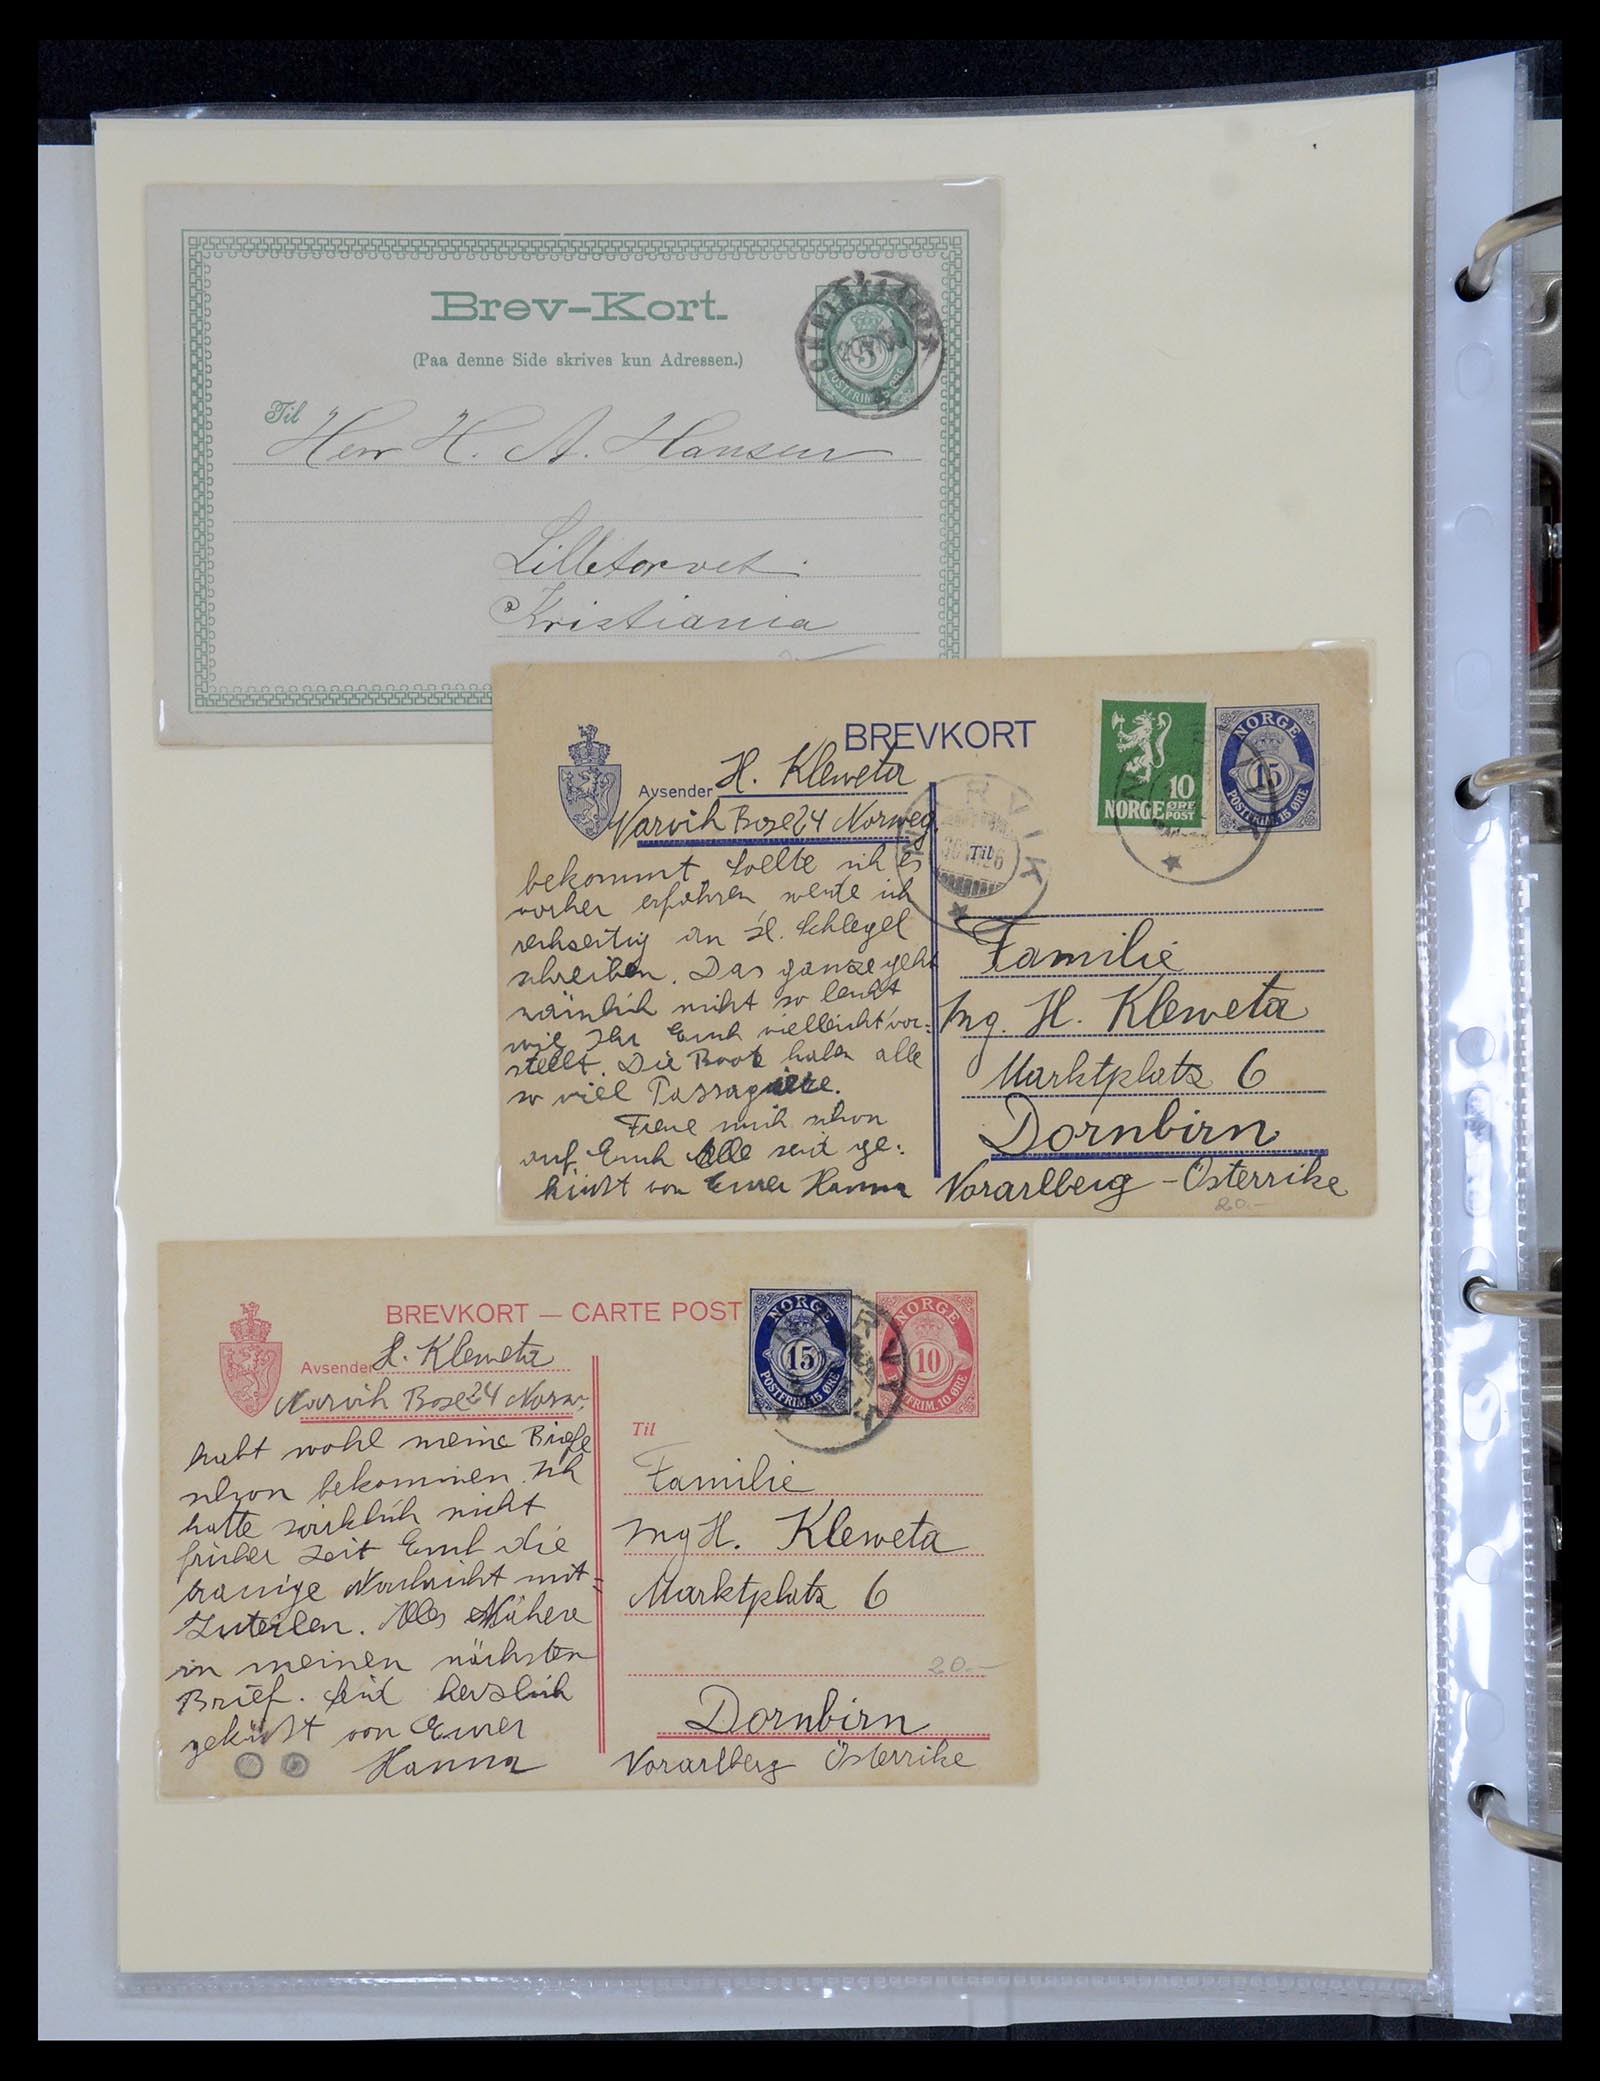 Brev-Kort.
(Paa denne Side skrives kun Adressen.)
Til
Herr H. A. Hansen
Lilletorvet
Kristiania
5
POSTFRIM. ØRE
BREVKORT
Avsender H. Kleweta
Narvik Box 24 Norweg.
bekommt Sollte ich es
vorher erfahren werde ich
an Schlegel
schreiben. Das ganze geht
nämlich nicht so leicht
wie Ihr Euch vielleicht vor-
stellt. Die Boote haben alle
so viel Passagiere.
Freue mich schon
auf Euch Alle seid ge-
küsst von Eurer Hanna
NARVIK
Til
10
NORGE ØRE POST
NORGE
15
POSTFRIM. 15 ØRE
Familie
Ing. H. Kleweta
Marktplatz 6
Dornbirn
Vorarlberg - Österrike
20.-
BREVKORT — CARTE POST
Avsender H. Kleweta
Narvik Box 24 Norw.
habt wohl meine Briefe
schon bekommen. Ich
hatte wirklich nicht
früher Zeit Euch die
traurige Nachricht mit-
zuteilen. Alles Nähere
in meinen nächsten
Brief. Seid herzlich
geküsst von Eurer
Hanna
NORGE
15
POSTFRIM. 15 ØRE
10
POSTFRIM. 10 ØRE
Til
Familie
Ing H. Kleweta
Marktplatz 6
20.-
Dornbirn
Vorarlberg Österrike